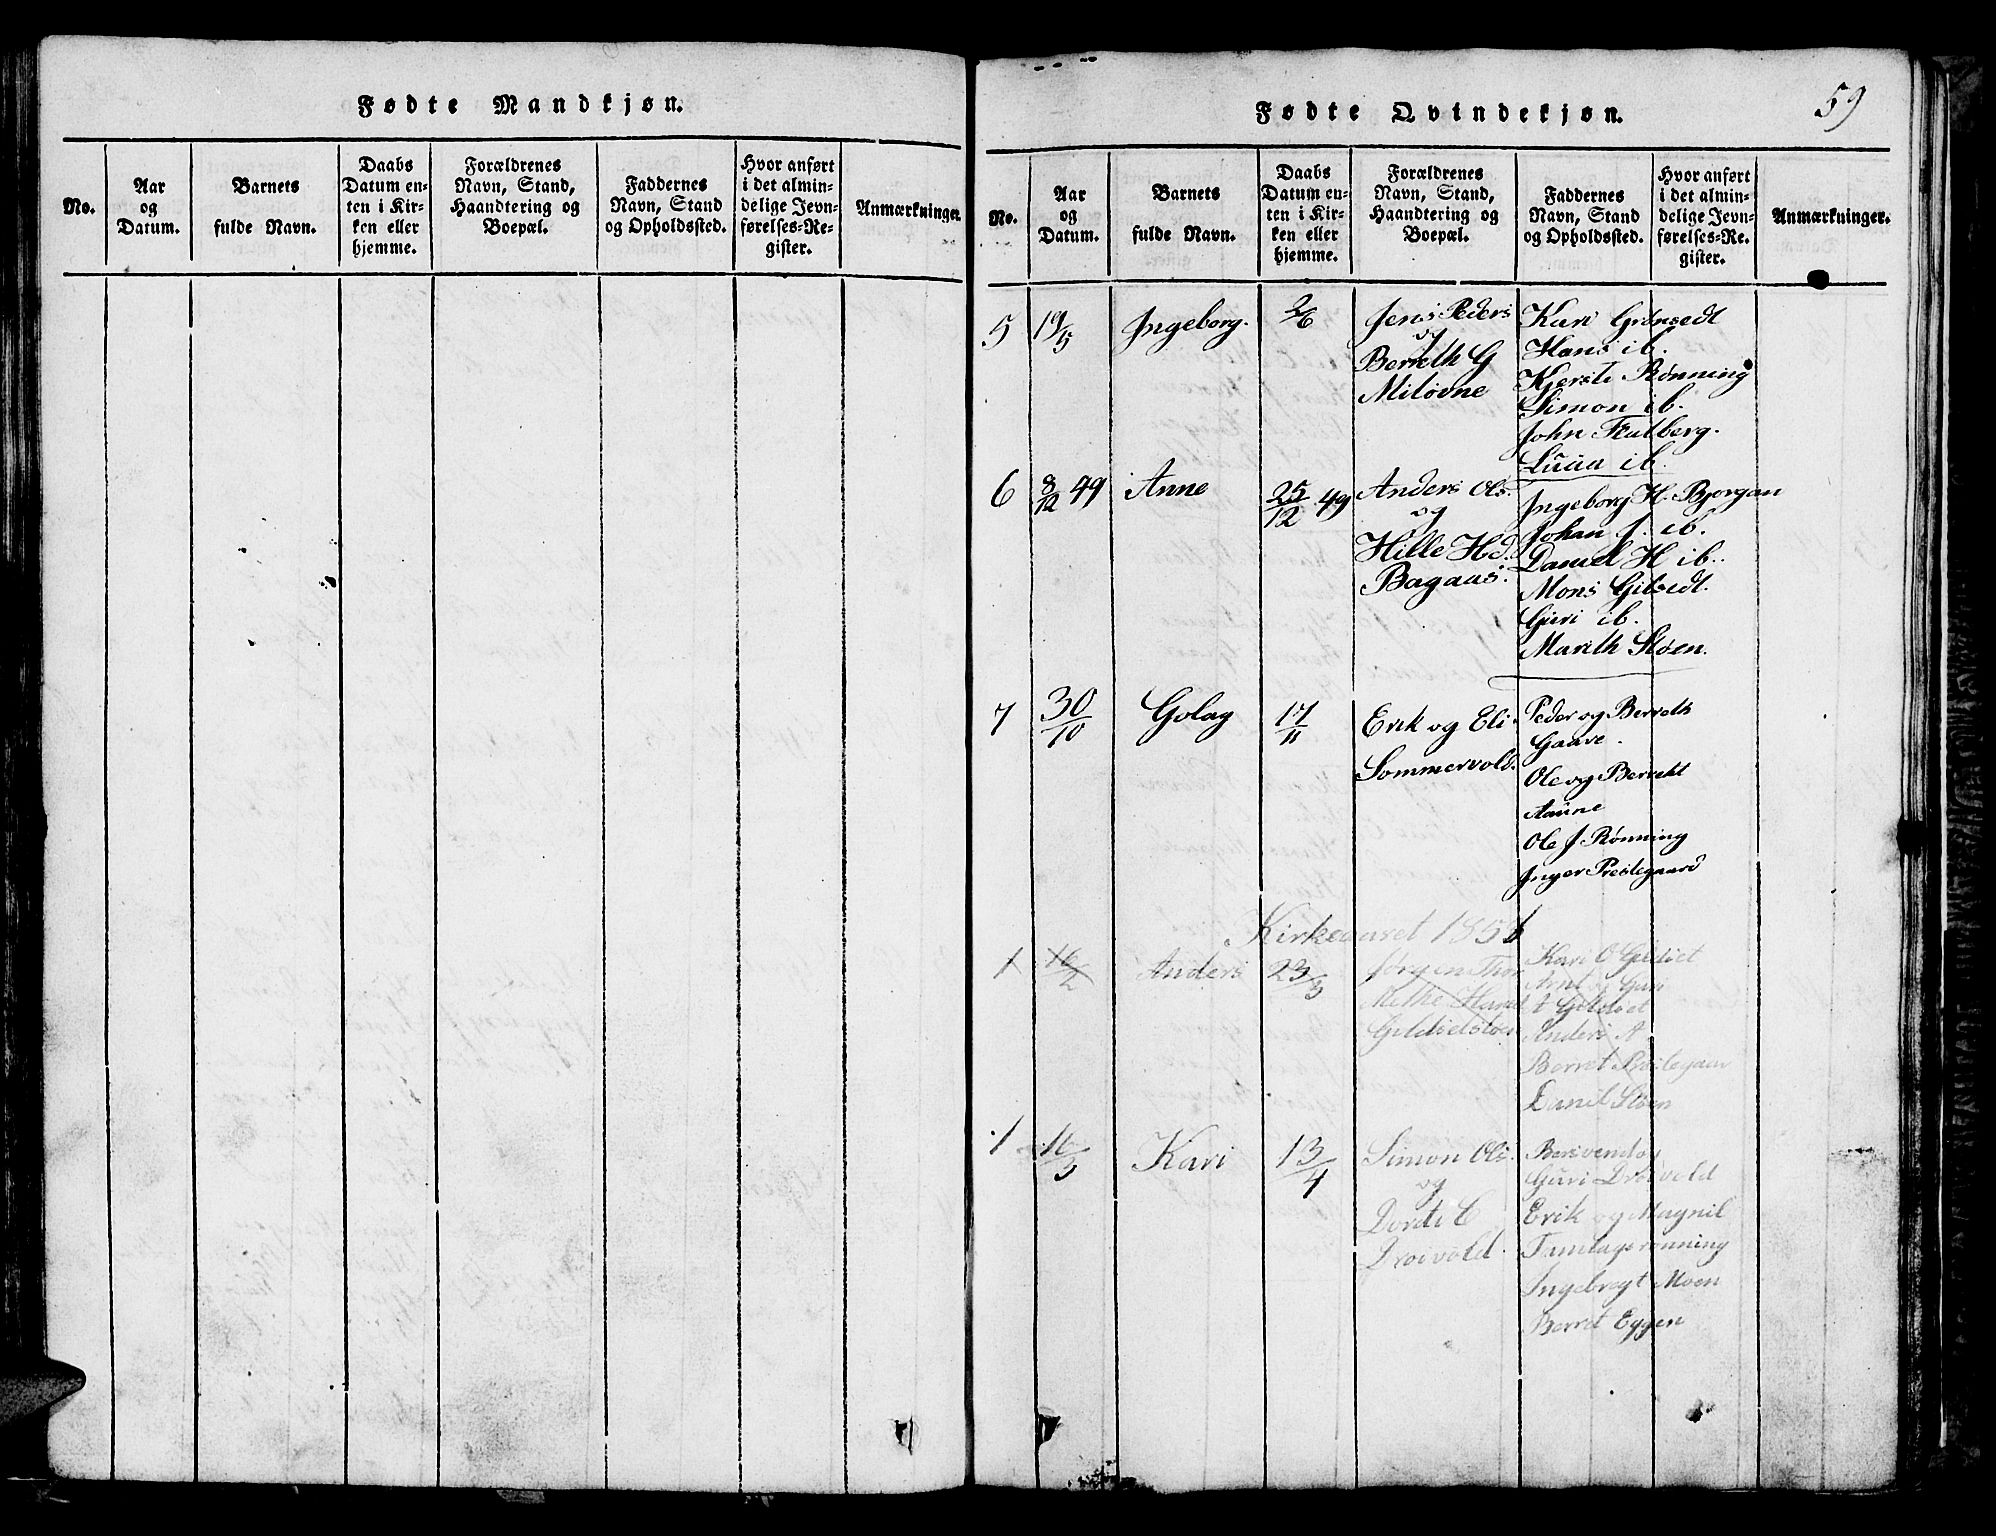 Fødte Mandkjøn.
No.
Aar
og
Datum.
Barnets
fulde Navn.
Daabs
Datum en-
ten i Kir-
ken eller
hjemme.
Forældrenes
Navn, Stand,
Haandtering og
Boepæl.
Faddernes
Navn, Stand
og Opholdssted.
Hvor anført
i det almin-
delige Jevn-
førelses-Re-
gister.
Anmærkninger.
59
Fødte Qvindekjøn.
No.
Aar
og
Datum.
Barnets
fulde Navn.
Daabs
Datum en-
ten i Kir-
ken eller
hjemme.
Forældrenes
Navn, Stand,
Haandtering og
Boepæl.
Faddernes
Navn, Stand
og Opholdssted.
Hvor anført
i det almin-
delige Jevn-
førelses-Re-
gister.
Anmærkninger.
5
19/5
Ingeborg.
2/6
Jens Peders
og
Bereth G
Miløvne
Kari Grønsedt
Hans ib.
Kjersti Rønning
Simon ib.
John Flatberg.
ib.
6
8/12 49
Anne
25/12 49
Anders Ols.
og
Hille Hd.
Bagaas.
Ingeborg H. Bjorgan
Johan J. ib.
Daniel H ib.
Mons Gilsedt.
Guri ib.
Marith Støen.
7
30/10
Golag
17/11
Erik og Eli
Sommervold.
Peder og Berreth
Gaare.
Ole og Berreht
Aaune
Ole J. Rønning
Inger Prestegaard
Kirkeaaret 1851
1
16/2
Anders
23/3
Jørgen Thor
Methe Harald
Gildsetstøen
Kari O Gildset
Arnt og Guri
t Gildset
Anders A
Berret Prestegaar
Danil Støen
1
16/3
Kari
13/4
Simon Ols.
og
Dorte C
Drøivold.
Guri Drøivold
Erik og Magnil
Tamlagsrønning
Ingebregt Moen
Berret Eggen